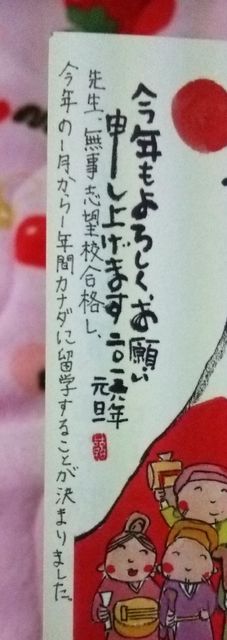 今年もよろしくお願い
申し上げます 二〇一六年
元旦
先生、無事志望校合格し、
今年の1月から1年間カナダに留学することが決まりました。